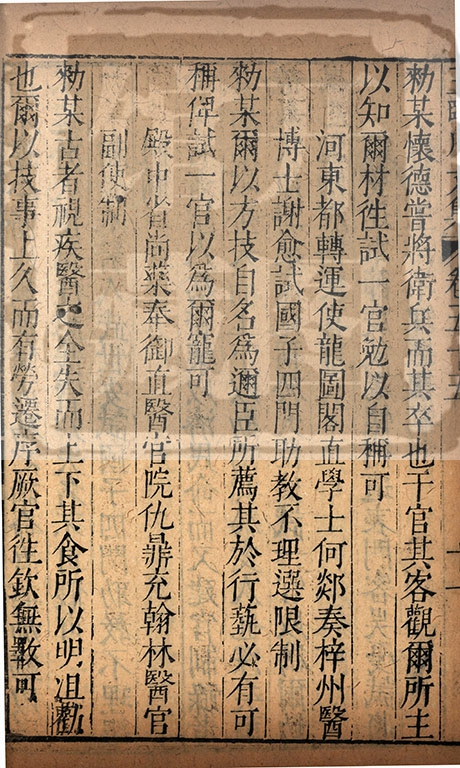 勑某懷德嘗將衛兵而其卒也干官其客觀爾所主
以知爾材徃試一官勉以自稱可
河東都轉運使龍圖閣直學士何郯奏梓州醫
博士謝愈試國子四門助教不理選限制
勑某爾以方技自名為邇臣所薦其於行藝必有可
稱俾試一官以為爾寵可
殿中省尚藥奉御直醫官院仇鼎充翰林醫官
副使制
勑某古者視疾醫之全失而上下其食所以明沮勸
也爾以技事上久而有勞遷序厥官徃欽無斁可